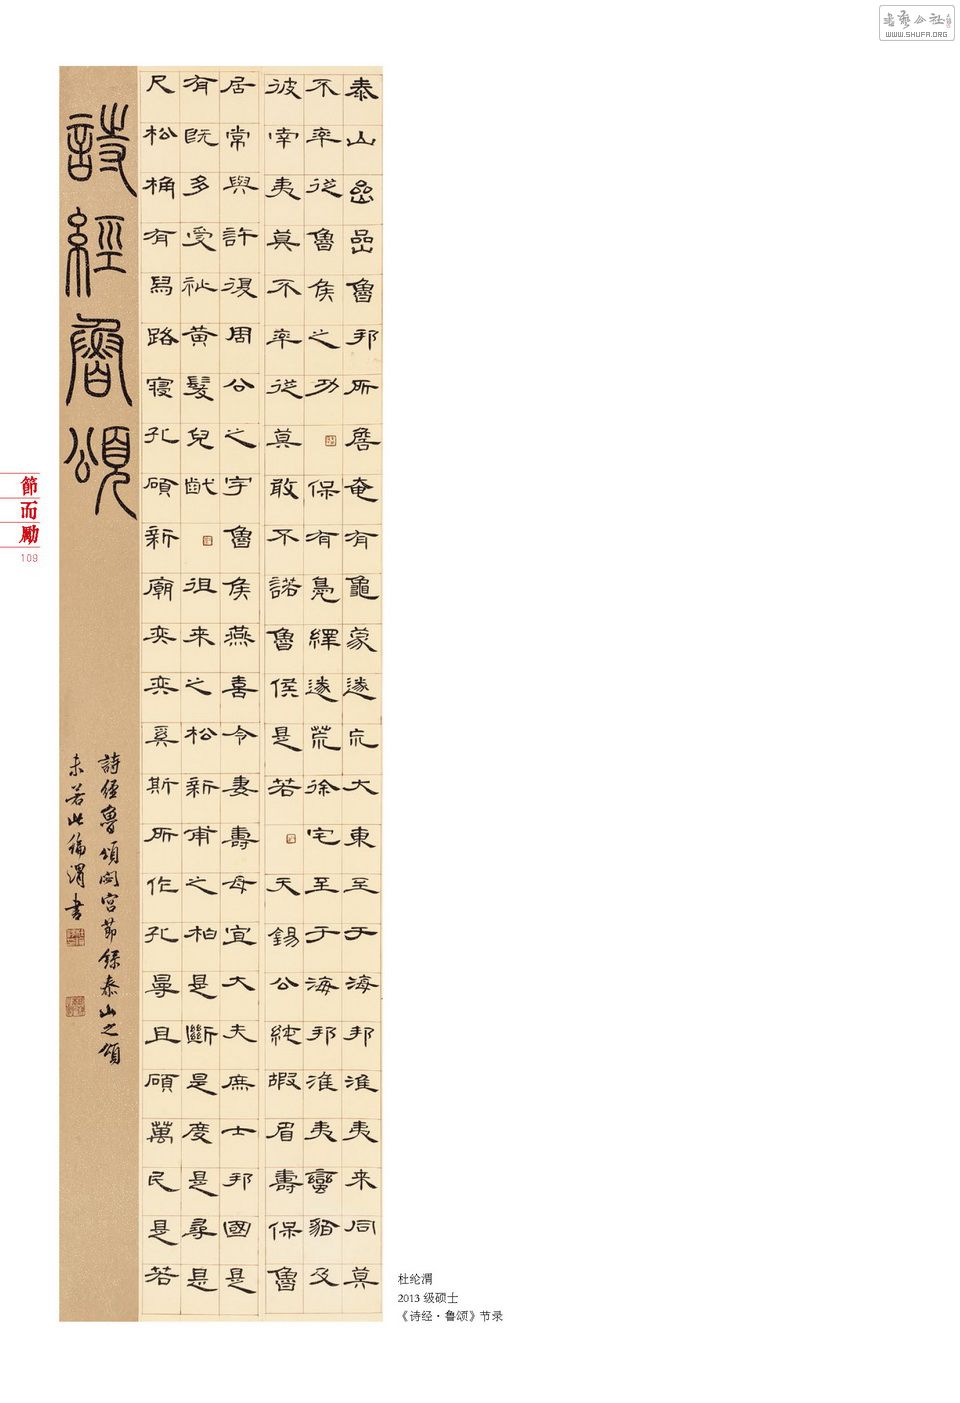 書藝公社
WWW.SHUFA.ORG
泰山嵒嵒魯邦所詹奄有龜蒙遂巟大東至于海邦淮夷来同莫
不率從魯侯之功保有鳧繹遂荒徐宅至于海邦淮夷蠻貊及
彼南夷莫不率從莫敢不諾魯侯是若天錫公純嘏眉壽保魯
居常與許復周公之宇魯侯燕喜令妻壽母宜大夫庶士邦國是
有既多受祉黄髮兒齒徂来之松新甫之柏是斷是度是尋是
尺松桷有舄路寢孔碩新廟奕奕奚斯所作孔曼且碩萬民是若
詩經魯頌
詩經魯頌閟宮節錄泰山之頌
未若此稿渭書
節而勵
109
杜纶渭
2013 级硕士
《诗经·鲁颂》节录